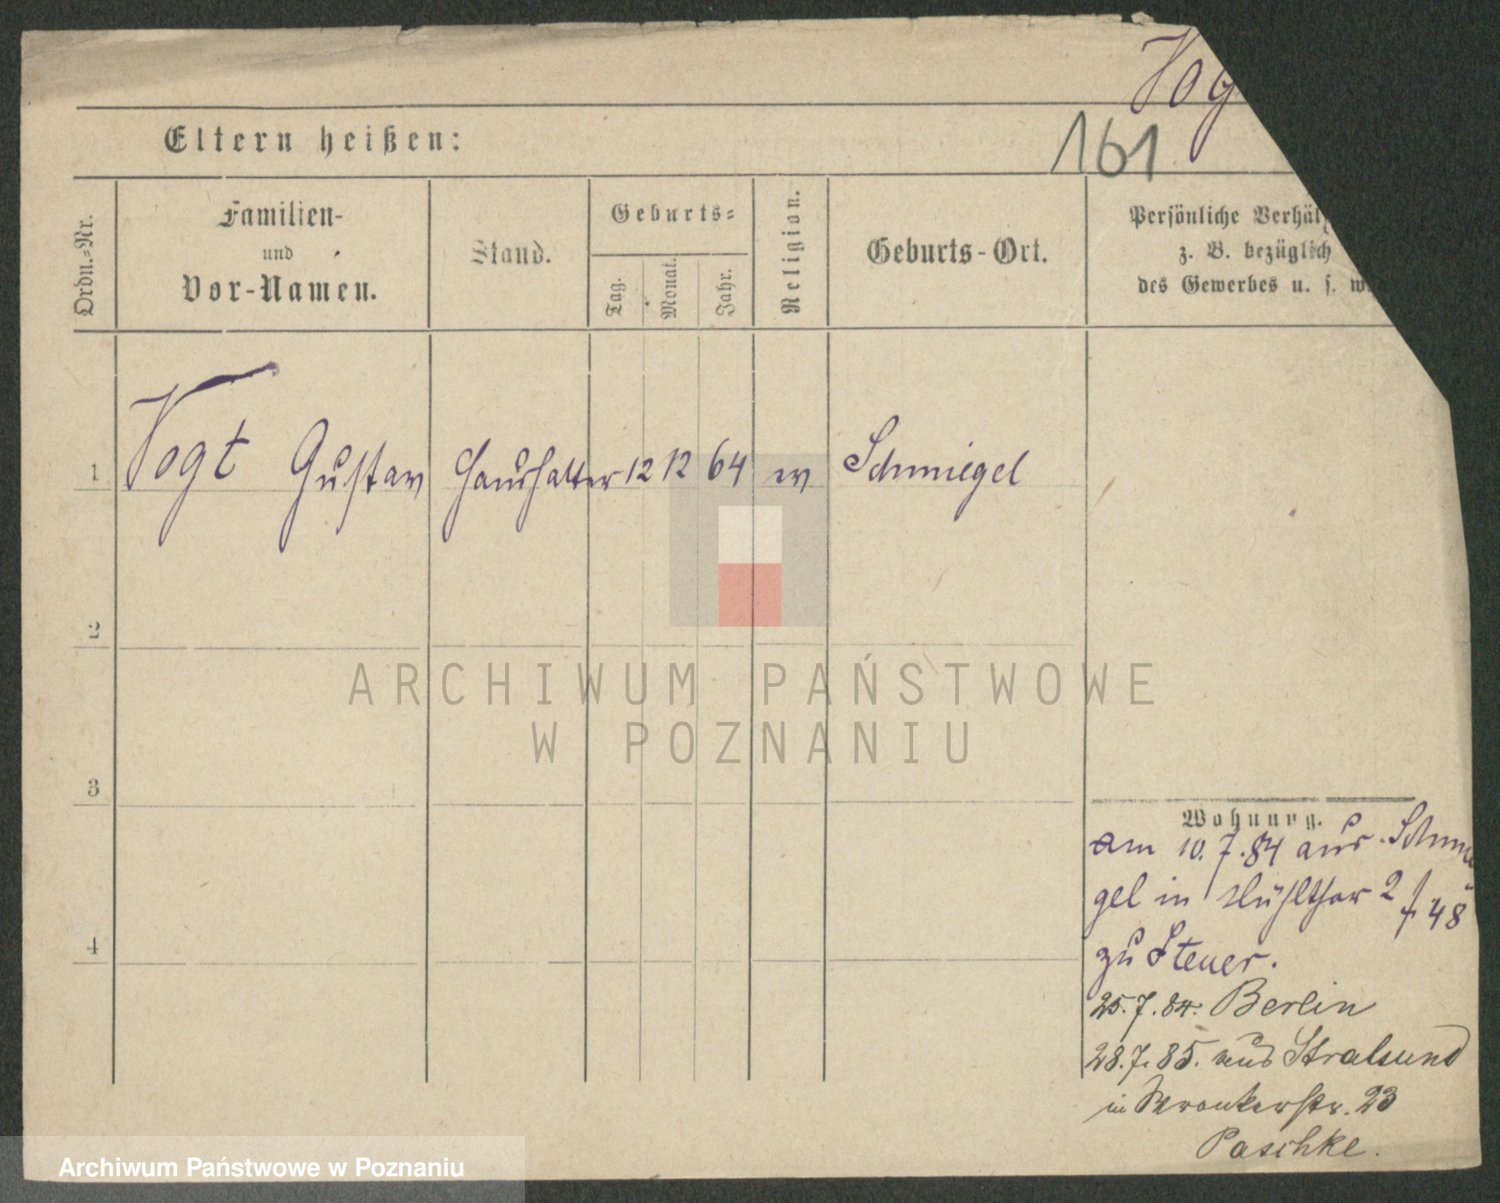 Vog
161
Eltern heißen:
Ordn.-Nr.
Familien-
und
Vor-Namen.
Stand.
Geburts-
Tag.
Monat.
Jahr.
Religion.
Geburts-Ort.
Persönliche Verhäl
z. B. bezüglich
des Gewerbes u. s. w.
1 Vogt Gustav Haushalter 12 12 64 ev Schmiegel
2
3
4
Wohnung.
am 10.7.84 aus Schmie
gel in Mühlthor 2 48
zu Steuer.
25.7.84. Berlin
28.7.85. aus Stralsund
in Wronkerstr. 23
Paschke.
ARCHIWUM PAŃSTWOWE
W POZNANIU
Archiwum Państwowe w Poznaniu